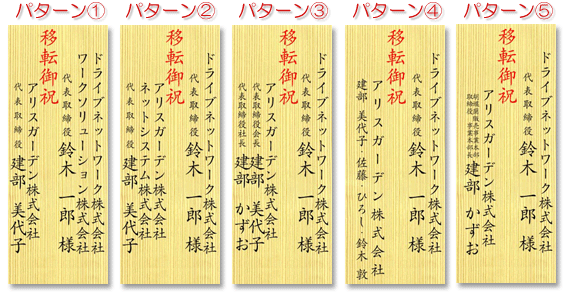 パターン①
ドライブネットワーク株式会社
ワークソリューション株式会社
代表取締役 鈴木 一郎 様
移転御祝
アリスガーデン株式会社
代表取締役 建部 美代子
パターン②
ドライブネットワーク株式会社
代表取締役 鈴木 一郎 様
移転御祝
アリスガーデン株式会社
ネットシステム株式会社
代表取締役 建部 美代子
パターン③
ドライブネットワーク株式会社
代表取締役 鈴木 一郎 様
移転御祝
アリスガーデン株式会社
代表取締役会長 建部 美代子
代表取締役社長 建部 かずお
パターン④
ドライブネットワーク株式会社
代表取締役 鈴木 一郎 様
移転御祝
アリスガーデン株式会社
建部 美代子・佐藤・ひろし・鈴木 敦
パターン⑤
ドライブネットワーク株式会社
代表取締役 鈴木 一郎 様
移転御祝
アリスガーデン株式会社
胡蝶蘭販売事業本部
取締役 事業本部長 建部 かずお